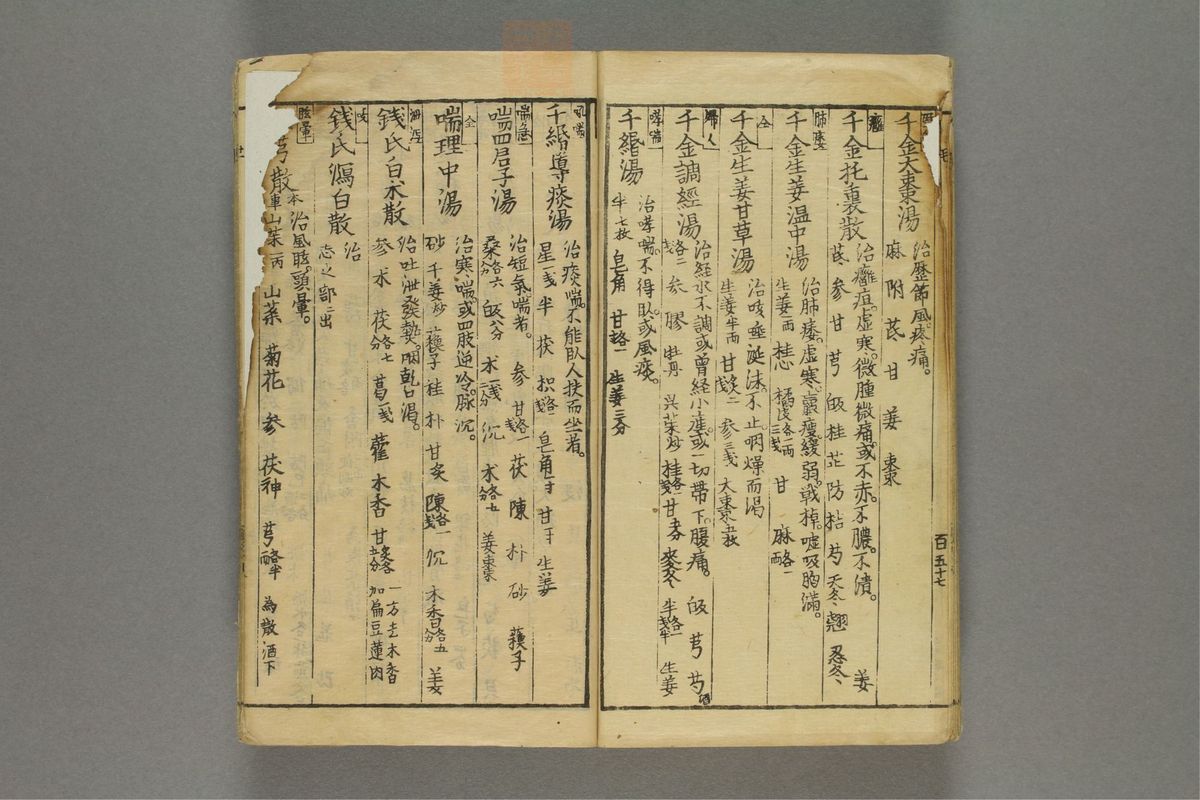 千金大棗湯
治歷節風疼痛。
麻 附 芪 甘 姜 棗
千金托裏散
治癰疽虛寒。微腫微痛。或不赤。不膿。不潰。
芪 参 甘 芎 皈 桂 芷 防 桔 芍 天冬 翹 忍冬 姜
肺痿
千金生姜温中湯
治肺痿。虛寒。羸瘦。緩弱。戦掉。嘘吸胸滿。
生姜一両 桂心 橘皮各一両三戔 甘 麻各一両
仝
千金生姜甘草湯
治咳唾涎沫。不止。咽燥而渴
生姜半両 甘各二戔 参三戔 大棗五枚
婦人
千金調經湯
治経水不調或曾経小產。或一切帶下。腹痛。 皈 芎 芍
各二戔 参 膠 牡丹 呉茱炒 桂各一戔 甘 麥冬 半各一戔半 生姜
哮喘
千緡湯
治哮喘。不得臥。或風痰。
半七枚 皂角 甘各一 生姜三分
千緡導痰湯
治痰喘。不能臥人扶而坐者。
星一戔 半 茯 枳各二戔 皂角 甘 生姜
喘急
喘四君子湯
治短氣喘者。 参 甘各一戔 茯 陳 朴 砂 蘓子
桑各六分 皈六分 木一戔二分 沉 木各五分 姜棗
仝
喘理中湯
治寒喘。或四肢逆冷。脉沉。
砂 干姜炒 蘓子 桂 朴 甘炙 陳各一戔 沉 木香各五分 姜
錢氏白朮散
治吐泄發熱。咽乾口渴。
参 朮 茯各七分 葛一戔 藿 木香 甘各五分 一方去木香加扁豆蓮肉
咳
錢氏瀉白散
治
志之部ニ出
眩暈
芎散
本 治風眩。頭暈。
山茱一両 山薬 菊花 参 茯神 芎各半両 為散酒下
百五十七